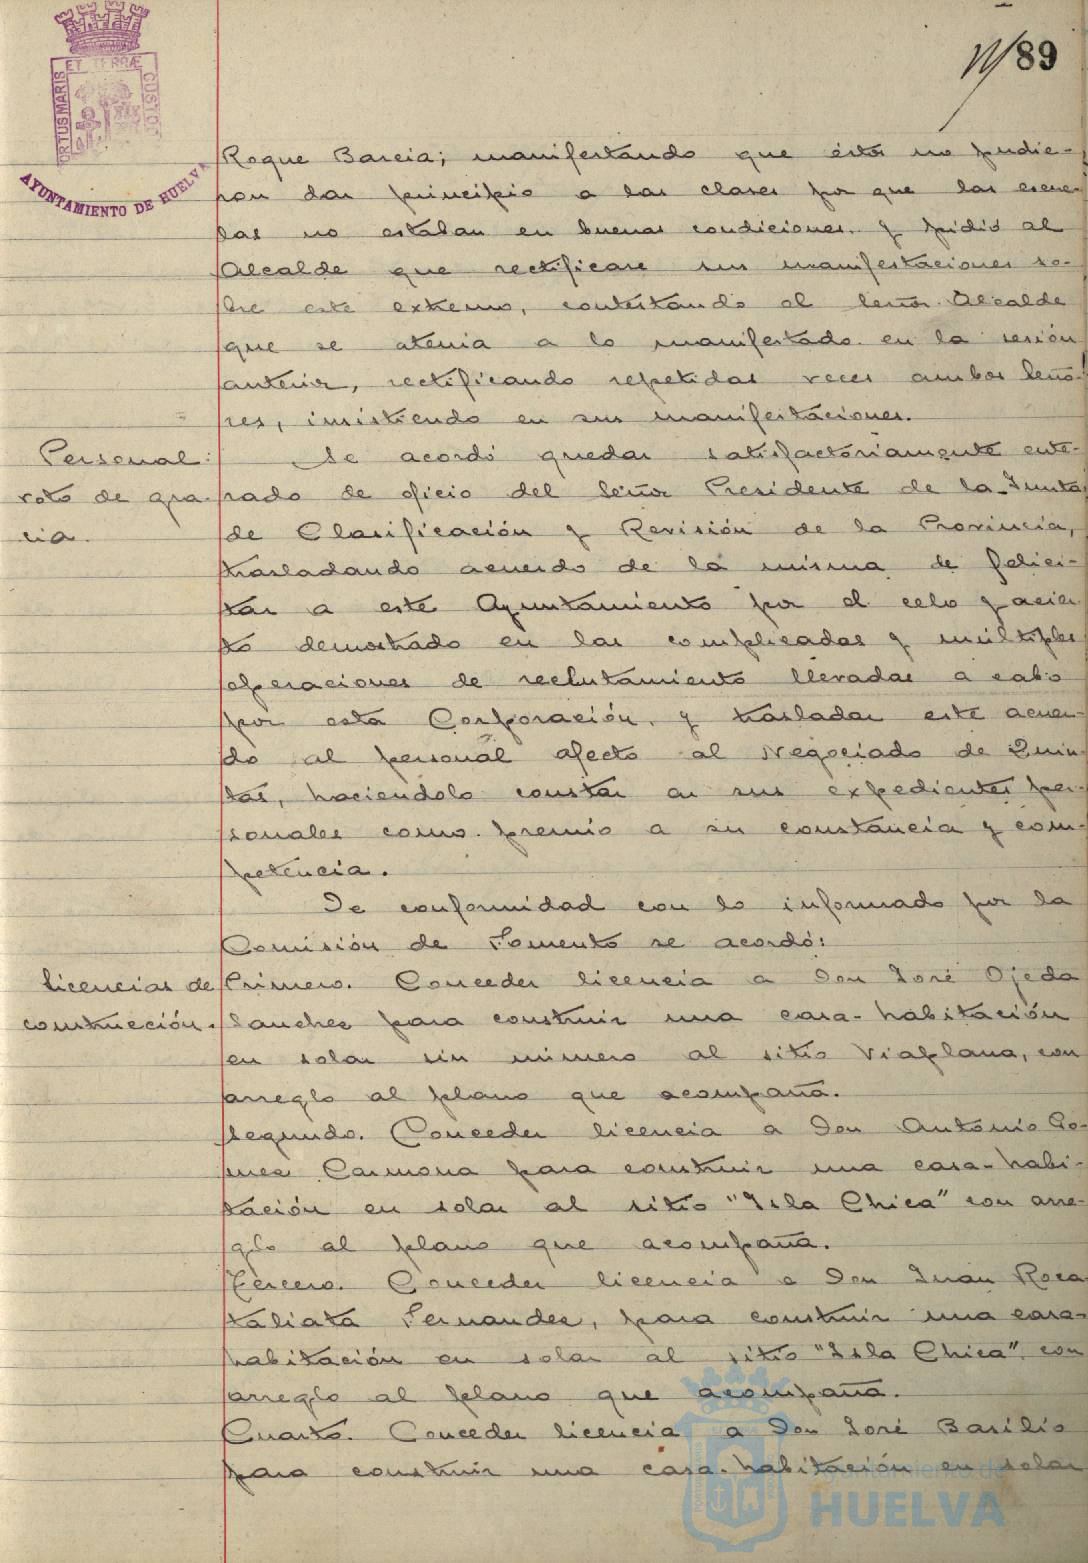 89
PORTUS MARIS ET TERRÆ CUSTOD
AYUNTAMIENTO DE HUELVA
Roque Barcia; manifestando que éstos no pudie-
ron dar principio a las clases por que las escue-
las no estaban en buenas condiciones. y pidió al
Alcalde que rectificase sus manifestaciones so-
bre este extremo, contestando el Señor Alcalde
que se atenia a lo manifestado en la sesión
anterior, rectificando repetidas veces ambos Seño-
res, insistiendo en sus manifestaciones.
Personal:
voto de gra-
cia.
Se acordó quedar satisfactoriamente ente-
rado de oficio del Señor Presidente de la Junta
de Clasificación y Revisión de la Provincia,
trasladando acuerdo de la misma de felici-
tar a este Ayuntamiento por el celo y acier
to demostrado en las complicadas y múltiples
operaciones de reclutamiento llevadas a cabo
por esta Corporación, y trasladar este acuer-
do al personal afecto al Negociado de Quin-
tas, haciendolo constar en sus expedientes per-
sonales como premio a su constancia y com-
petencia.
De conformidad con lo informado por la
Comisión de Fomento se acordó:
licencias de
construcción.
Primero. Conceder licencia a Don José Ojeda
Sanchez para construir una casa-habitación
en solar sin número al sitio Viaplana, con
arreglo al plano que acompaña.
Segundo. Conceder licencia a Don Antonio Go-
mez Carmona para construir una casa-habi-
tación en solar al sitio "Isla Chica" con arre-
glo al plano que acompaña.
Tercero. Conceder licencia a Don Juan Roca
taliata Fernandez, para construir una casa-
habitación en solar al sitio "Isla Chica", con
arreglo al plano que acompaña.
Cuarto. Conceder licencia a Don José Basilio
para construir una casa-habitación en solar
Ayuntamiento de
HUELVA